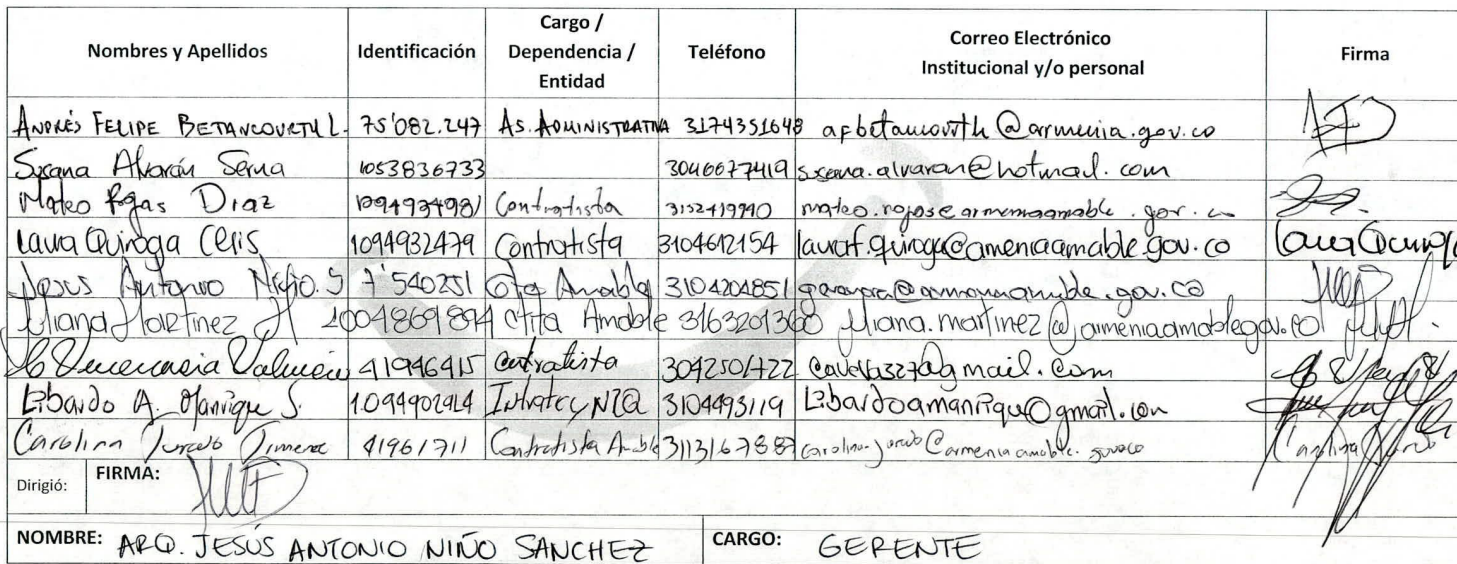 Nombres y Apellidos Identificación Cargo / Dependencia / Entidad Teléfono Correo Electrónico Institucional y/o personal Firma
ANDRÉS FELIPE BETANCOURTH L. 75'082.247 AS. ADMINISTRATIVA 3174351648 afbetancourth@armenia.gov.co
Susana Alvarán Serna 1053836733 3046677419 susana.alvaran@hotmail.com
Mateo Rojas Diaz 1094934981 Contratista 3152419990 mateo.rojas@armeniaamable.gov.co
Laura Quiroga Celis 1094932479 Contratista 3104612154 lauraf.quiroga@ameniaamable.gov.co Laura Quiroga
Jesus Antonio Niño.S 7'540251 Amable 3104204851
Martinez H 1004869894 Ctta Amable 3163201360 martinez@armeniaamablegov.co
41946415 contratista 3042501722 @gmail.com
Libardo A. Manrique S. 1.094902914 3104493119 Libardoamanrique@gmail.com
Carolina Jurado Jimenez 41961711 Contratista Amable 3113167887 carolina.jurado@armeniaamable.govoco Carolina Jurado
Dirigió: FIRMA:
NOMBRE: ARQ. JESÚS ANTONIO NIÑO SANCHEZ CARGO: GERENTE